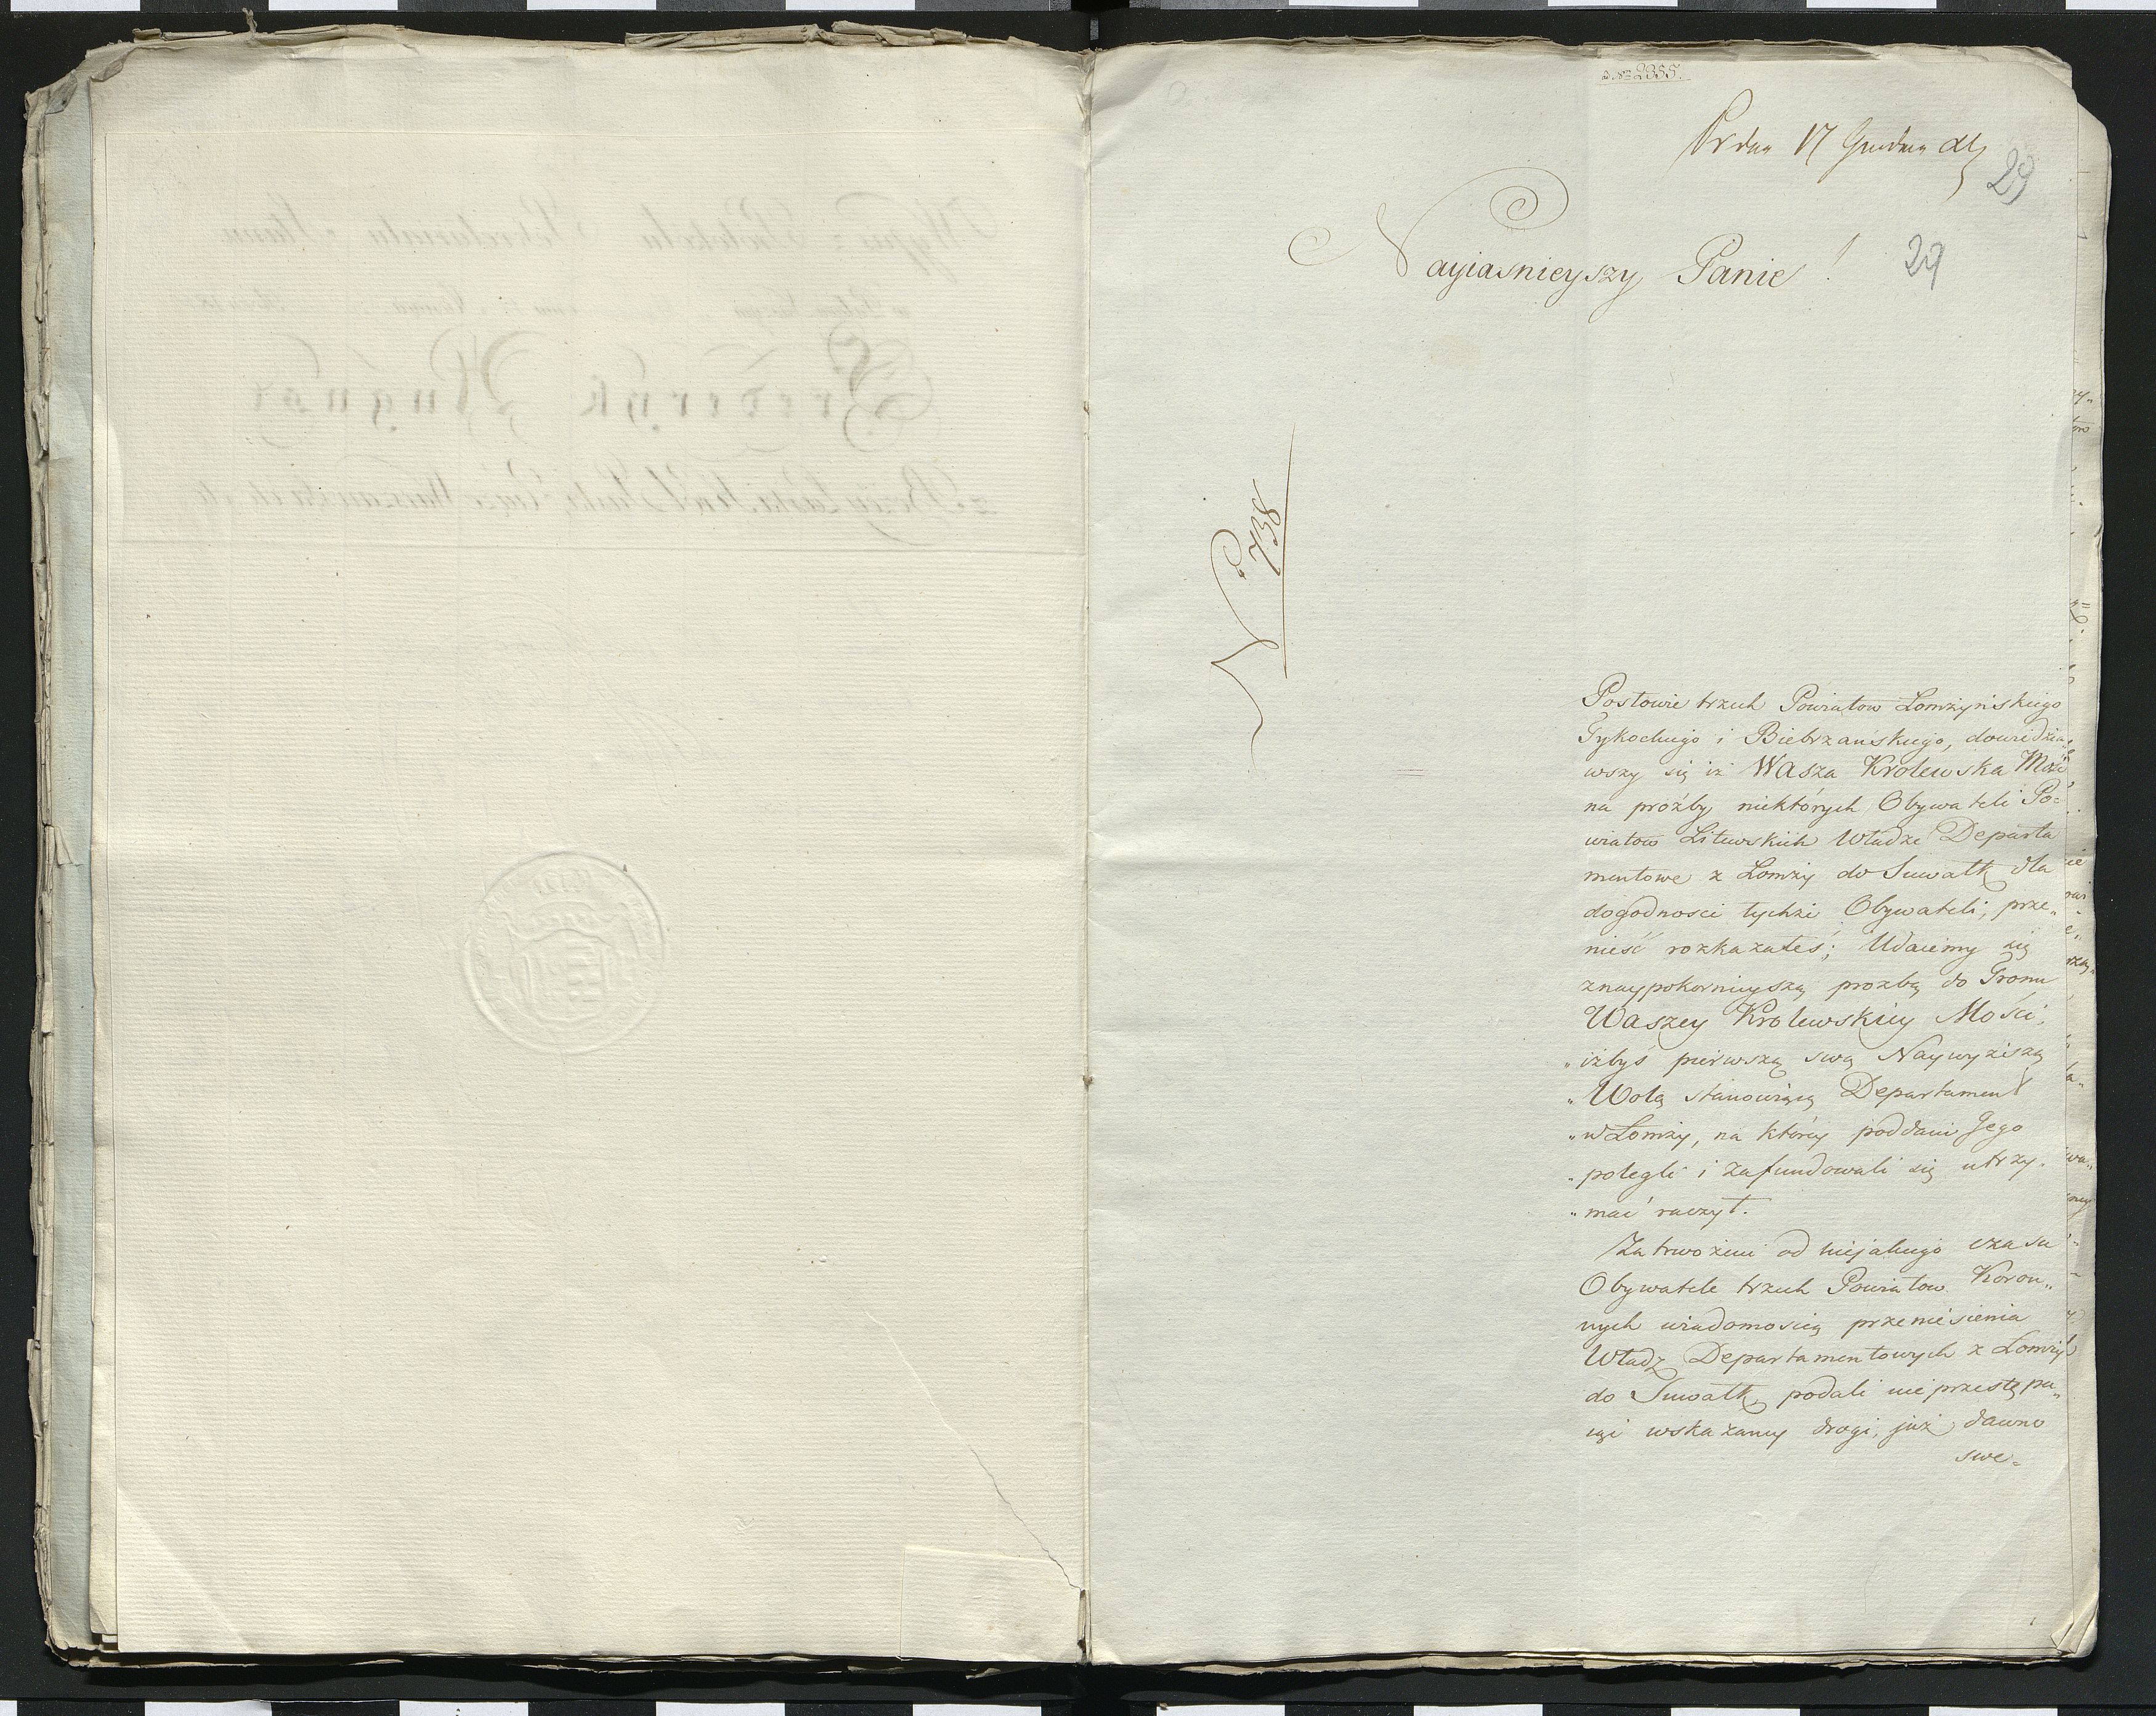 № 2355.
Pr dnia 17 Grudnia
29
Nayiasnieyszy Panie!
29
N° 738
Postowie trzech Powiatow Lomżyńskiego
Tykockiego i Biebrzanskiego, dowiedzia„
wszy się iż Wasza Krolewska Mość
na proźby niektórych Obywateli Po=
wiatow Litewskich Władze Departa
mentowe z Lomży do Suwałk dla
dogodności tychże Obywateli, prze„
nieść rozkazałeś; Udaiemy się
znaypokornieyszą prozbą do Tronu
Waszey Krolewskiey Mości,
„iżbyś pierwszą swą Naywyższą
„Wolą stanowiącą Departament
„w Lomży, na którey poddani Jego
„polegli i zafundowali się utrzy„
„mać raczył.
Zatrwożeni od niejakiego czasu
Obywatele trzech Powiatow Koron„
nych wiadomością przeniesienia
Władz Departamentowych z Lomży
do Suwałk, podali nieprzestępu„
iąc wskazaney drogi, już dawno
swe=